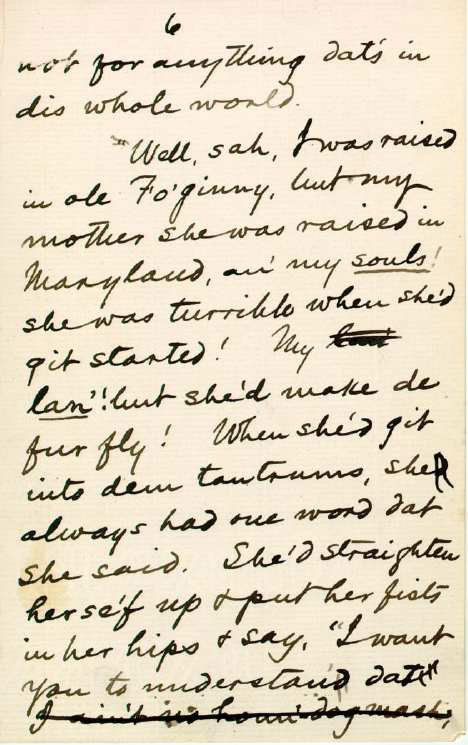 6
not for anything dat's in
dis whole world.
"Well, sah, I was raised
in ole Fo'ginny, but my
mother she was raised in
Maryland, an' my souls!
she was turrible when she'd
git started! My lan'
lan'! but she'd make de
fur fly! When she'd git
into dem tantrums, she
always had one word dat
she said. She'd straighten
herse'f up & put her fists
in her hips & say, "I want
you to understan'd dat
I ain't no